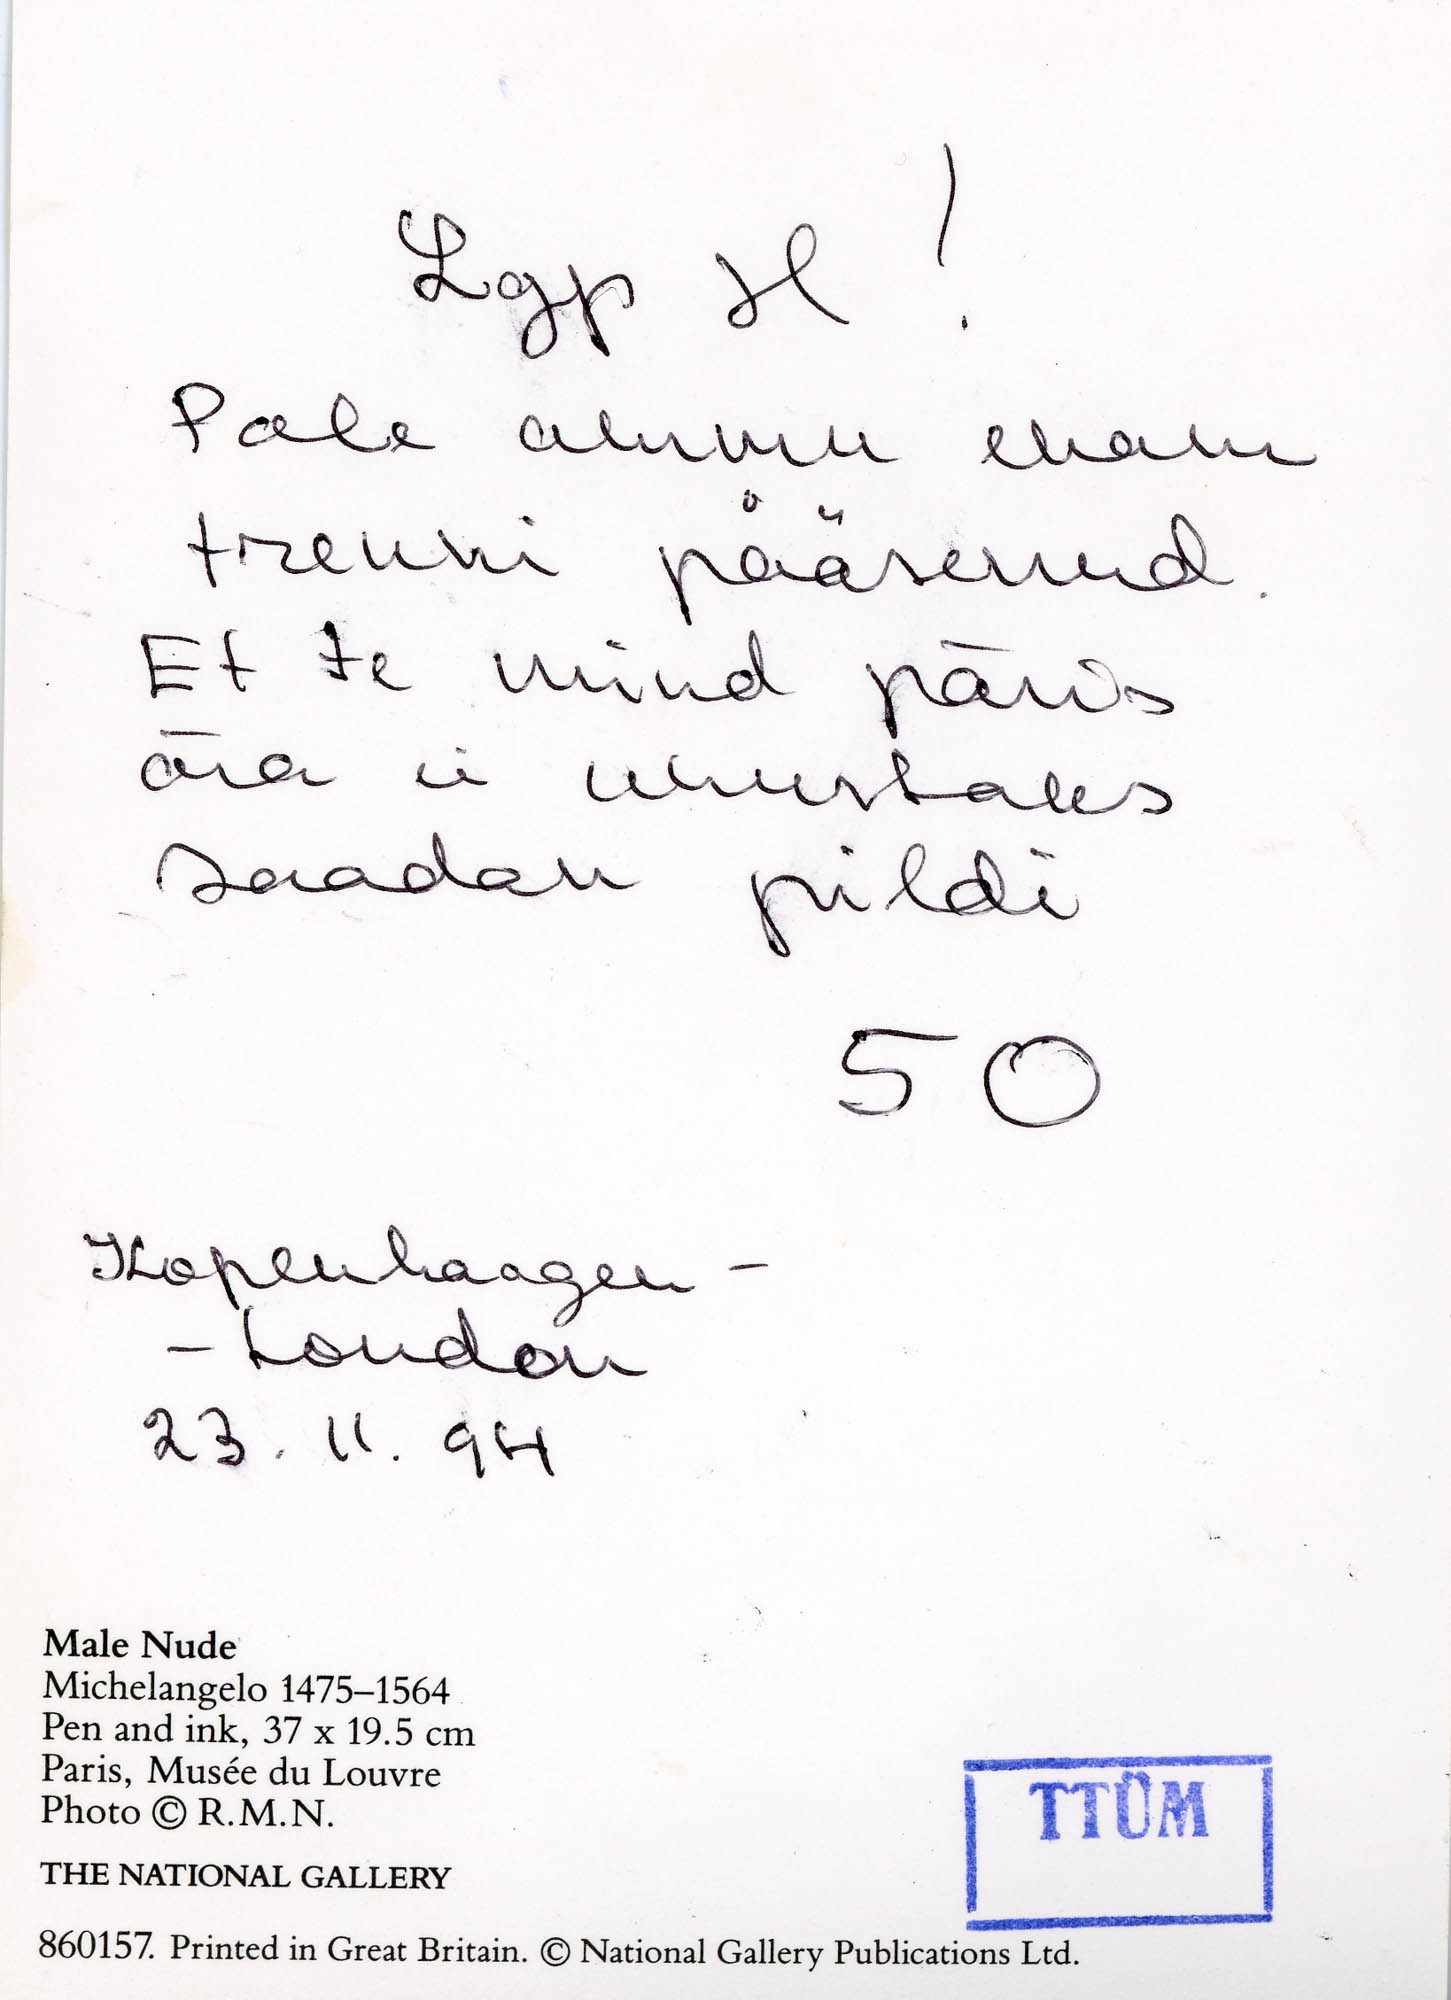 Lgp H!
Pole ammu enam
trenni pääsenud.
Et te mind päris
ära ei unustaks
saadan pildi
50
Kopenhaagen -
- London
23. 11. 94
Male Nude
Michelangelo 1475–1564
Pen and ink, 37 x 19.5 cm
Paris, Musée du Louvre
Photo © R.M.N.
THE NATIONAL GALLERY
TTÜM
860157. Printed in Great Britain. © National Gallery Publications Ltd.